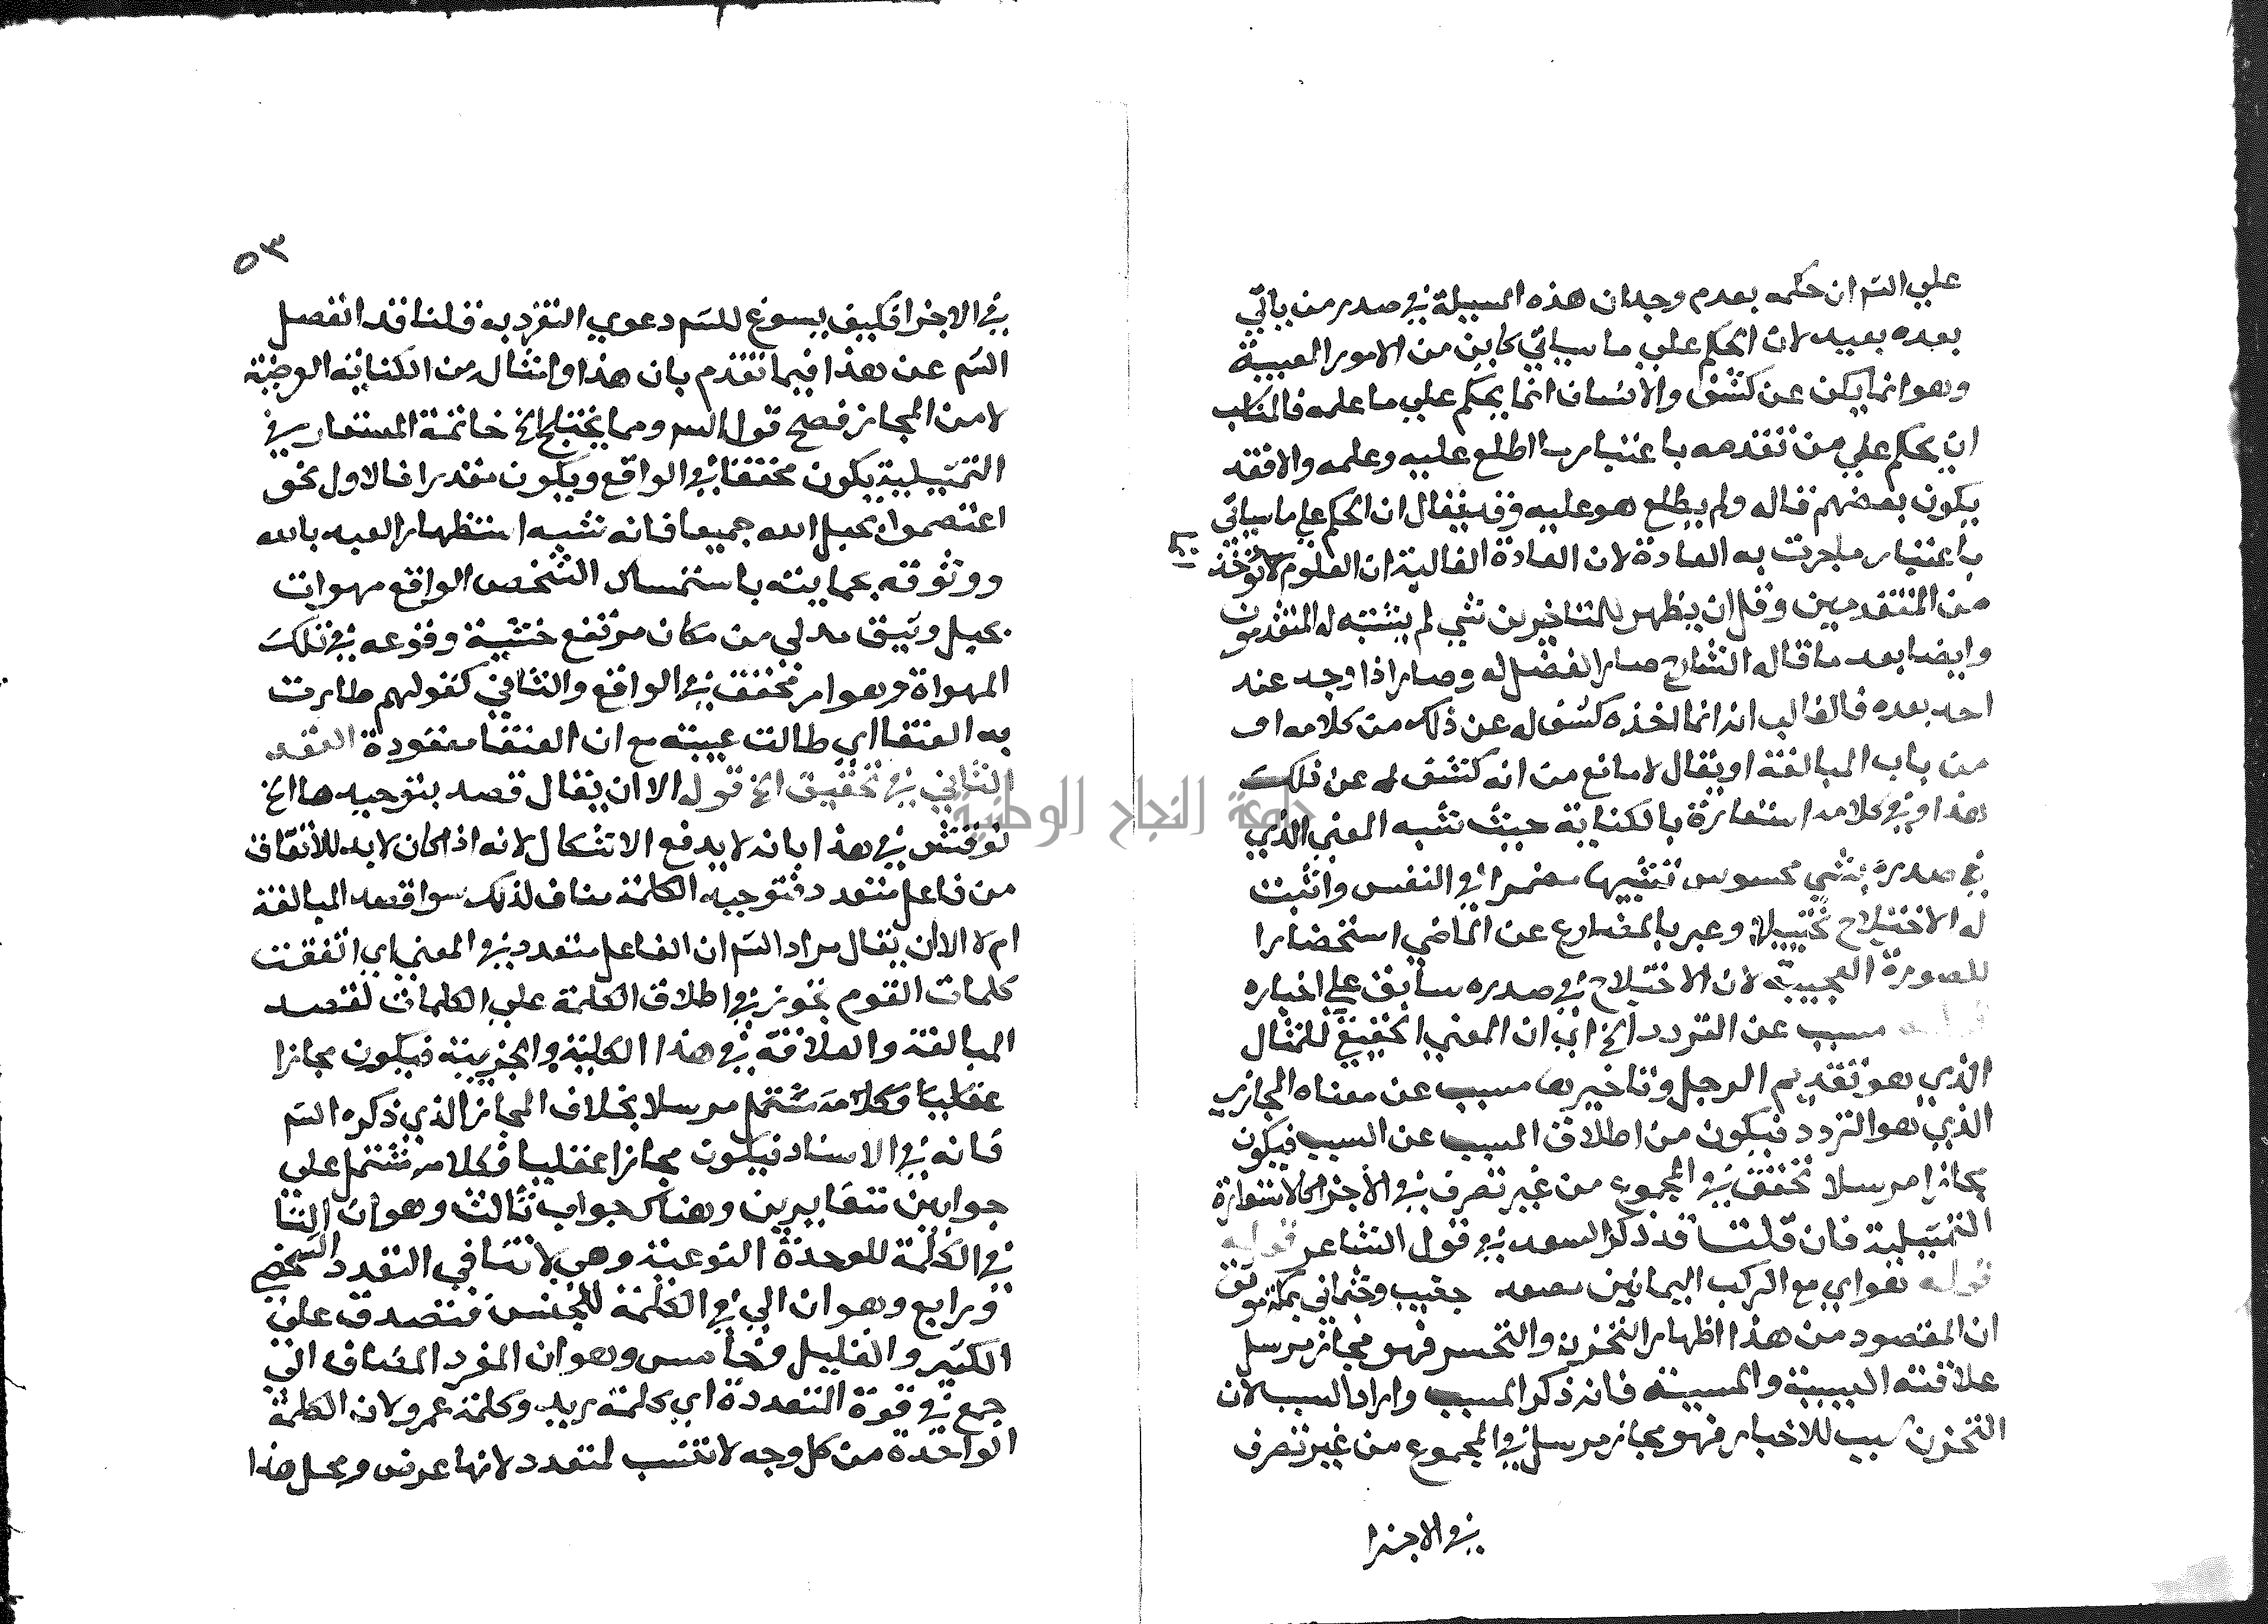 علي السم ان حكمه بعدم وجدان هذه المسيلة في صدر من ياتي
بعده بعيد لان الحكم علي ما سياتي كاين من الامور الغيبية
وهو انما يكن عن كشف والانسان انما يحكم علي ما علمه فالمناسب
ان يحكم علي من تقدمه باعتبار ما اطلع عليه وعلمه والا فقد
يكون بعضهم قاله ولم يطلع هو عليه وقد يقال ان الحكم علي ما سياتي
باعتبار ما جرت به العادة لان العادة الغالبة ان العلوم لا توخذ الا
من المتقدمين وقل ان يظهر للمتاخرين شي لم يتنبه له المتقدمون
وايضا بعد ما قاله الشارح صار الفضل له وصار اذا وجد عند
احد بعده فالغالب انه انما اخذه كشف له عن ذلك من كلامه او
من باب المبالغة او يقال لا مانع من انه كشف له عن ذلك
هذا وفي كلامه استعارة بالكناية حيث شبه المعني الذي
في صدره بشي محسوس تشبيها مضمرا في النفس واثبت
له الاختلاج تخييلا وعبر بالمضارع عن الماضي استحضارا
للصورة العجيبة لان الاختلاج في صدره سابق علي اخباره
قوله مسبب عن التردد الخ اي ان المعني الحقيقي للمثال
الذي هو تقديم الرجل وتاخيرها مسبب عن معناه المجازي
الذي هو التردد فيكون من اطلاق المسبب عن السبب فيكون
مجازا مرسلا تحقق في المجموع من غير تصرف في الاجزا كالاستعارة
التمثيلية فان قلت قد ذكر السعد في قول الشاعر قوله
قوله هواي مع الركب اليمانين مصعد جنيب وجثماني بمكة موثق
ان المقصود من هذا اظهار التحزن والتحسر فهو مجاز مرسل
علاقته السببية والمسببية فانه ذكر المسبب واراد السبب لان
التحزن سبب للاخبار فهو مجاز مرسل في المجموع من غير تصرف
في الاجزا
٥٣
في الاجزا فكيف يسوغ للسم دعوي التفرد به قلنا قد انفصل
السم عن هذا فيما تقدم بان هذا وامثاله من الكناية العرضية
لا من المجاز فصح قول السم ومما يختلج الخ خاتمة المستعار في
التمثيلية يكون محققا في الواقع ويكون مقدرا فالاول نحو
اعتصموا بحبل الله جميعا فانه شبه استظهار العبد بالله
ووثوقه بحمايته باستمساك الشخص الواقع مهوات
بحبل وثيق مدلي من مكان مرتفع خشية وقوعه في تلك
المهواة وهو امر محقق في الواقع والثاني كقولهم طارت
به العنقا اي طالت غيبته مع ان العنقا مفقودة العقد
الثاني في تحقيق الخ قوله الا ان يقال قصد بتوجيهها الخ
نوقش في هذا بانه لا يدفع الاشكال لانه اذا كان لا بد للاتفاق
من فاعل متعدد فتوجيه الكلمة مناف لذلك سوا قصد المبالغة
ام لا الا ان يقال مراد السم ان الفاعل متعدد في المعني اي اتفقت
كلمات القوم تجوز في اطلاق الكلمة علي الكلمات لقصد
المبالغة والعلاقة في هذا الكلية والجزيية فيكون مجازا
عقليا وكلامه مشتمل مرسلا بخلاف المجاز الذي ذكره السم
فانه في الاسناد فيكون مجازا عقليا فكلامه مشتمل علي
جوابين متغايرين وهناك جواب ثالث وهو ان التا
في الكلمة للوحدة النوعية وهي لا تنافي التعدد الشخصي
ورابع وهو ان ال في الكلمة للجنس فتصدق علي
الكثير والقليل وخامس وهو ان المفرد المضاف الي
جمع في قوة المتعددة اي كلمة زيد وكلمة عمرو لان الكلمة
الواحدة من كل وجه لا تنسب لمتعدد لانها عرض ومحل هذا
جامعة النجاح الوطنية